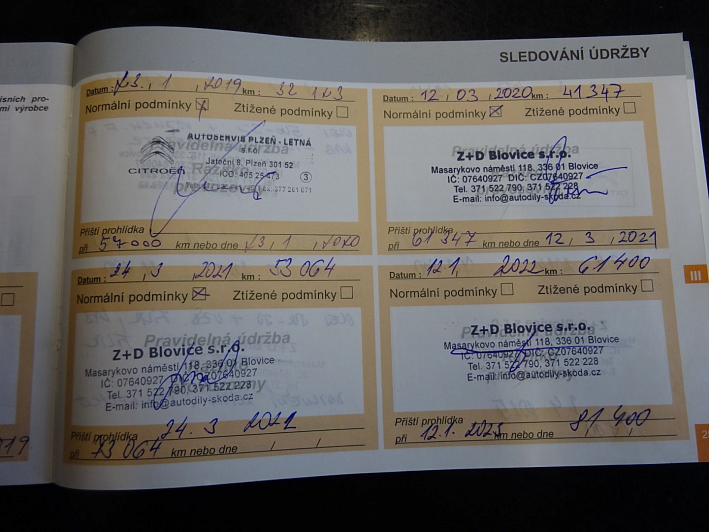 SLEDOVÁNÍ ÚDRŽBY
isních pro-
mi výrobce
Datum: 23. 1. 2019 km: 32 123
Normální podmínky Ztížené podmínky
AUTOSERVIS PLZEŇ - LETNÁ
s.r.o.
Jateční 8, Plzeň 301 52
CITROËN
3
Příští prohlídka
při 57000 km nebo dne 23. 1. 2020
Datum: 12. 03. 2020 km: 41 347
Normální podmínky Ztížené podmínky
Z+D Blovice s.r.o.
Masarykovo náměstí 118, 336 01 Blovice
IČ: 07640927 DIČ: CZ07640927
Tel. 371 522 790, 371 522 228
E-mail: info@autodily-skoda.cz
Příští prohlídka
při 61 347 km nebo dne 12. 3. 2021
Datum: 24. 3. 2021 km: 53 064
Normální podmínky Ztížené podmínky
Z+D Blovice s.r.o.
Masarykovo náměstí 118, 336 01 Blovice
IČ: 07640927 DIČ: CZ07640927
Tel. 371 522 790, 371 522 228
E-mail: info@autodily-skoda.cz
Příští prohlídka 24. 3 2021
při 73 064 km nebo dne
Datum: 12.1. 2022 km: 61400
Normální podmínky Ztížené podmínky
Z+D Blovice s.r.o.
Masarykovo náměstí 118, 336 01 Blovice
IČ: 07640927 DIČ: CZ07640927
Tel. 371 522 790, 371 522 228
E-mail: info@autodily-skoda.cz
Příští prohlídka
při 12.1. 2023 km nebo dne 81400
III